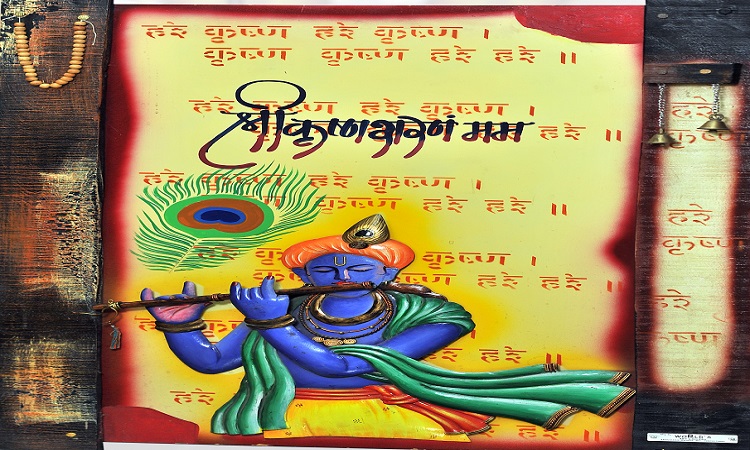 हरे कृष्ण हरे कृष्ण ।
कृष्ण कृष्ण हरे हरे ॥
हरे कृष्ण हरे कृष्ण ।
श्रीकृष्णशरणं मम
हरे ॥
हरे कृष्ण हरे कृष्ण ।
कृष्ण हरे हरे ॥
हरे कृष्ण ।
हरे हरे ॥
हरे
हरे हरे ॥
हरे
हरे ॥
हरे
कृष्ण
हरे
कृष्ण